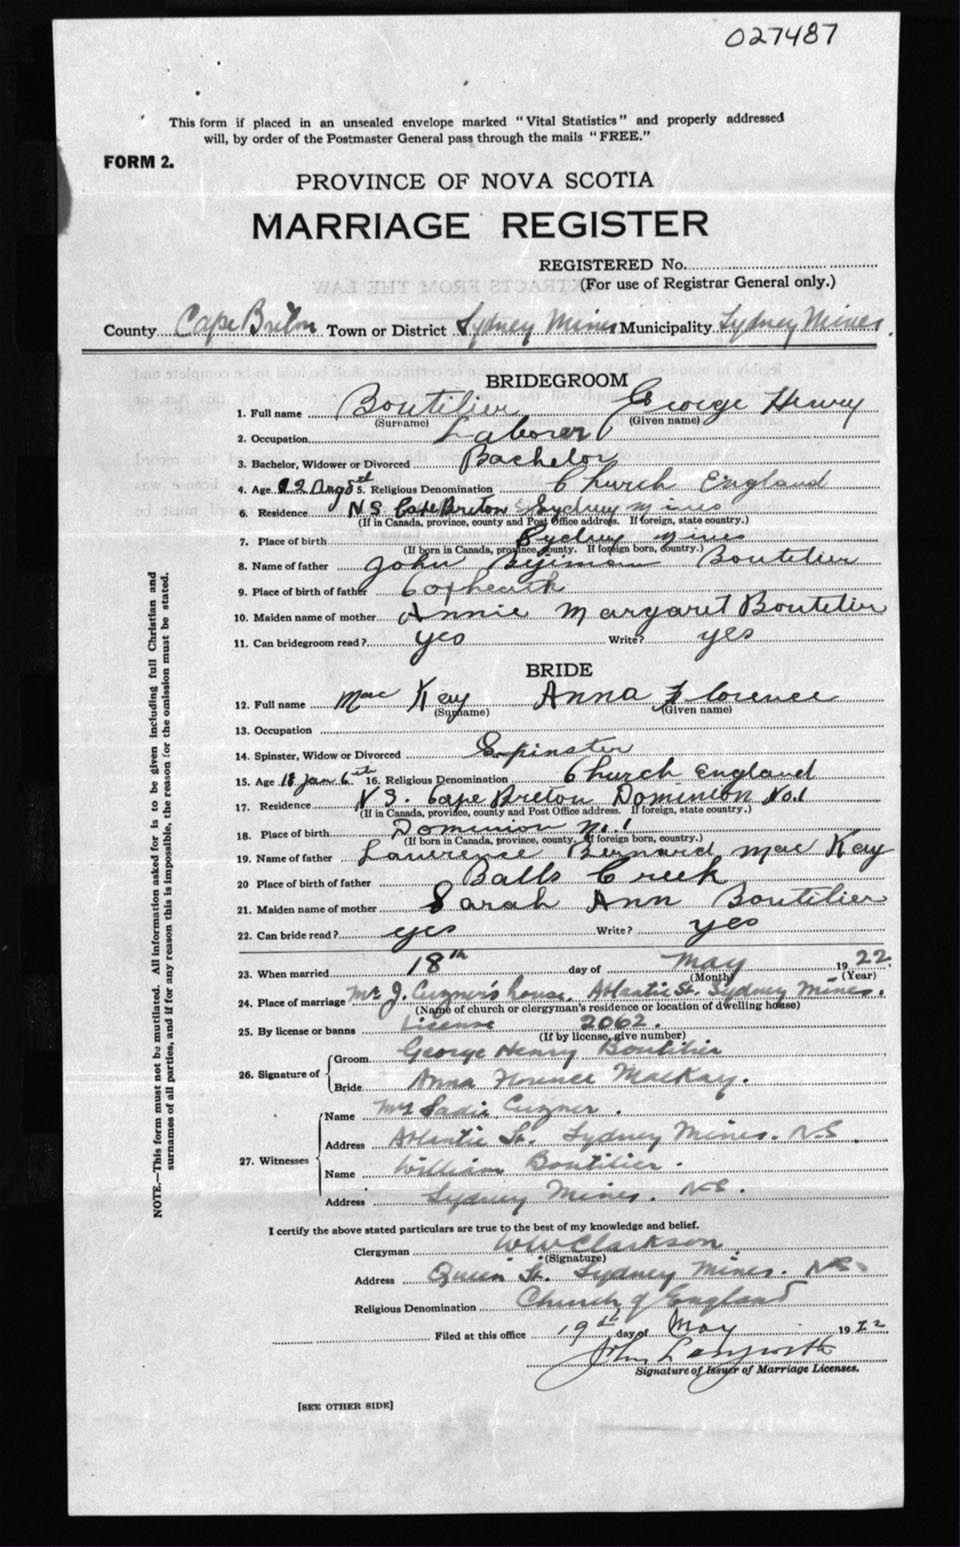 027487
This form if placed in an unsealed envelope marked "Vital Statistics" and properly addressed
will, by order of the Postmaster General pass through the mails "FREE."
FORM 2.
PROVINCE OF NOVA SCOTIA
MARRIAGE REGISTER
REGISTERED No.
(For use of Registrar General only.)
County Cape Breton Town or District Sydney Mines Municipality Sydney Mines.
BRIDEGROOM
1. Full name Boutilier George Henry
(Surname) (Given name)
2. Occupation Laborer
3. Bachelor, Widower or Divorced Bachelor
4. Age 22 Aug 8th 5. Religious Denomination Church England
6. Residence N S Cape Breton Sydney Mines
(If in Canada, province, county and Post Office address. If foreign, state country.)
7. Place of birth Sydney Mines
(If born in Canada, province, county. If foreign born, country.)
8. Name of father John Boutilier
9. Place of birth of father Coxheath
10. Maiden name of mother Annie Margaret Boutilier
11. Can bridegroom read? yes Write? yes
BRIDE
12. Full name Mac Kay Anna Florence
(Surname) (Given name)
13. Occupation
14. Spinster, Widow or Divorced Spinster
15. Age 18 Jan 6th 16. Religious Denomination Church England
17. Residence N S. Cape Breton Dominion No.1
(If in Canada, province, county and Post Office address. If foreign, state country.)
18. Place of birth Dominion No. 1
(If born in Canada, province, county, if foreign born, country.)
19. Name of father Lawrence Bernard Mac Kay
20 Place of birth of father Balls Creek
21. Maiden name of mother Sarah Ann Boutilier
22. Can bride read? yes Write? yes
23. When married 18th day of May 1922
(Month) (Year)
24. Place of marriage Mr J. Cuzner's house, Atlantic St. Sydney Mines.
(Name of church or clergyman's residence or location of dwelling house)
25. By license or banns License 2062.
(If by license, give number)
26. Signature of Groom George Henry Boutilier
Bride Anna Florence MacKay.
27. Witnesses Name Mrs Sadie Cuzner.
Address Atlantic St. Sydney Mines. N.S.
Name William Boutilier.
Address Sydney Mines. N.S.
I certify the above stated particulars are true to the best of my knowledge and belief.
Clergyman W W Clarkson.
(Signature)
Address Queen St. Sydney Mines. N.S.
Religious Denomination Church of England
Filed at this office 19th day of May 1922
John Langworth
Signature of Issuer of Marriage Licenses.
[SEE OTHER SIDE]
NOTE.—This form must not be mutilated. All information asked for is to be given including full Christian and
surnames of all parties, and if for any reason this is impossible, the reason for the omission must be stated.